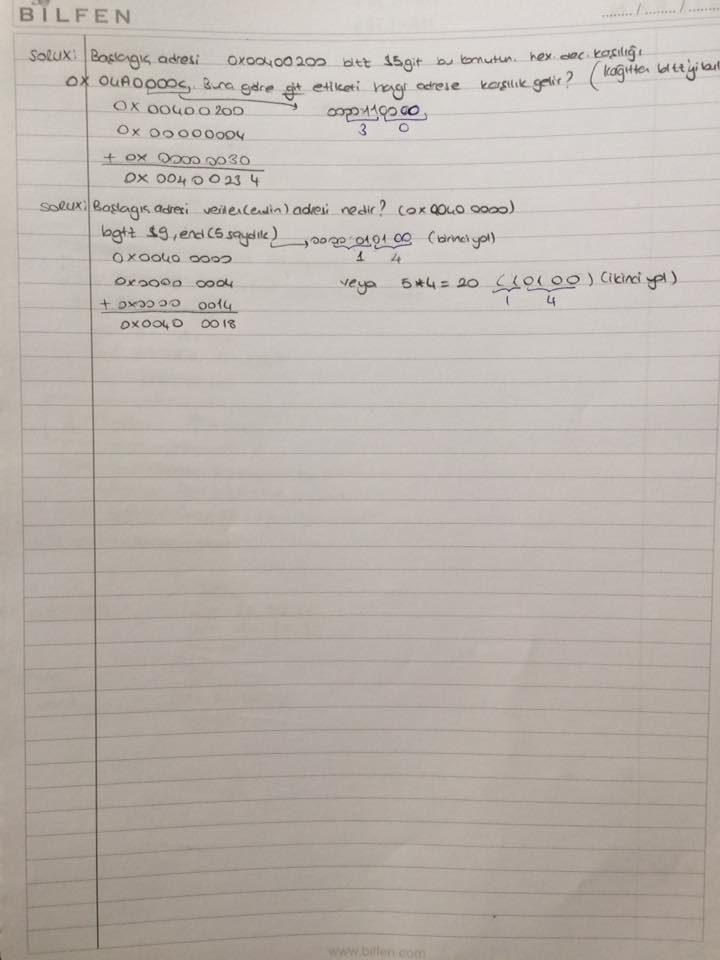 BİLFEN
......../......../........
SORUX: Başlagıç adresi 0x00400200 bltz $5git bu komutun hex.dec. kaşılığı
0X 04A0000C. Buna göre git etiketi hangi adrese karşılık gelir? (kağıttan bltz'yi bul
0X 00400200 0000110000
0x 00000004 3 0
+ 0x 00000030
0X 00400234
SORUX: Başlagıç adresi verilen(end'in) adresi nedir? (0x0040 0000)
bgtz $9, end(5 saydık) 0000 010100 (birinci yol)
0x0040 0000 1 4
0x0000 0004 veya 5*4=20 (10100) (ikinci yol)
+ 0x0000 0014 1 4
0x0040 0018
www.bilfen.com